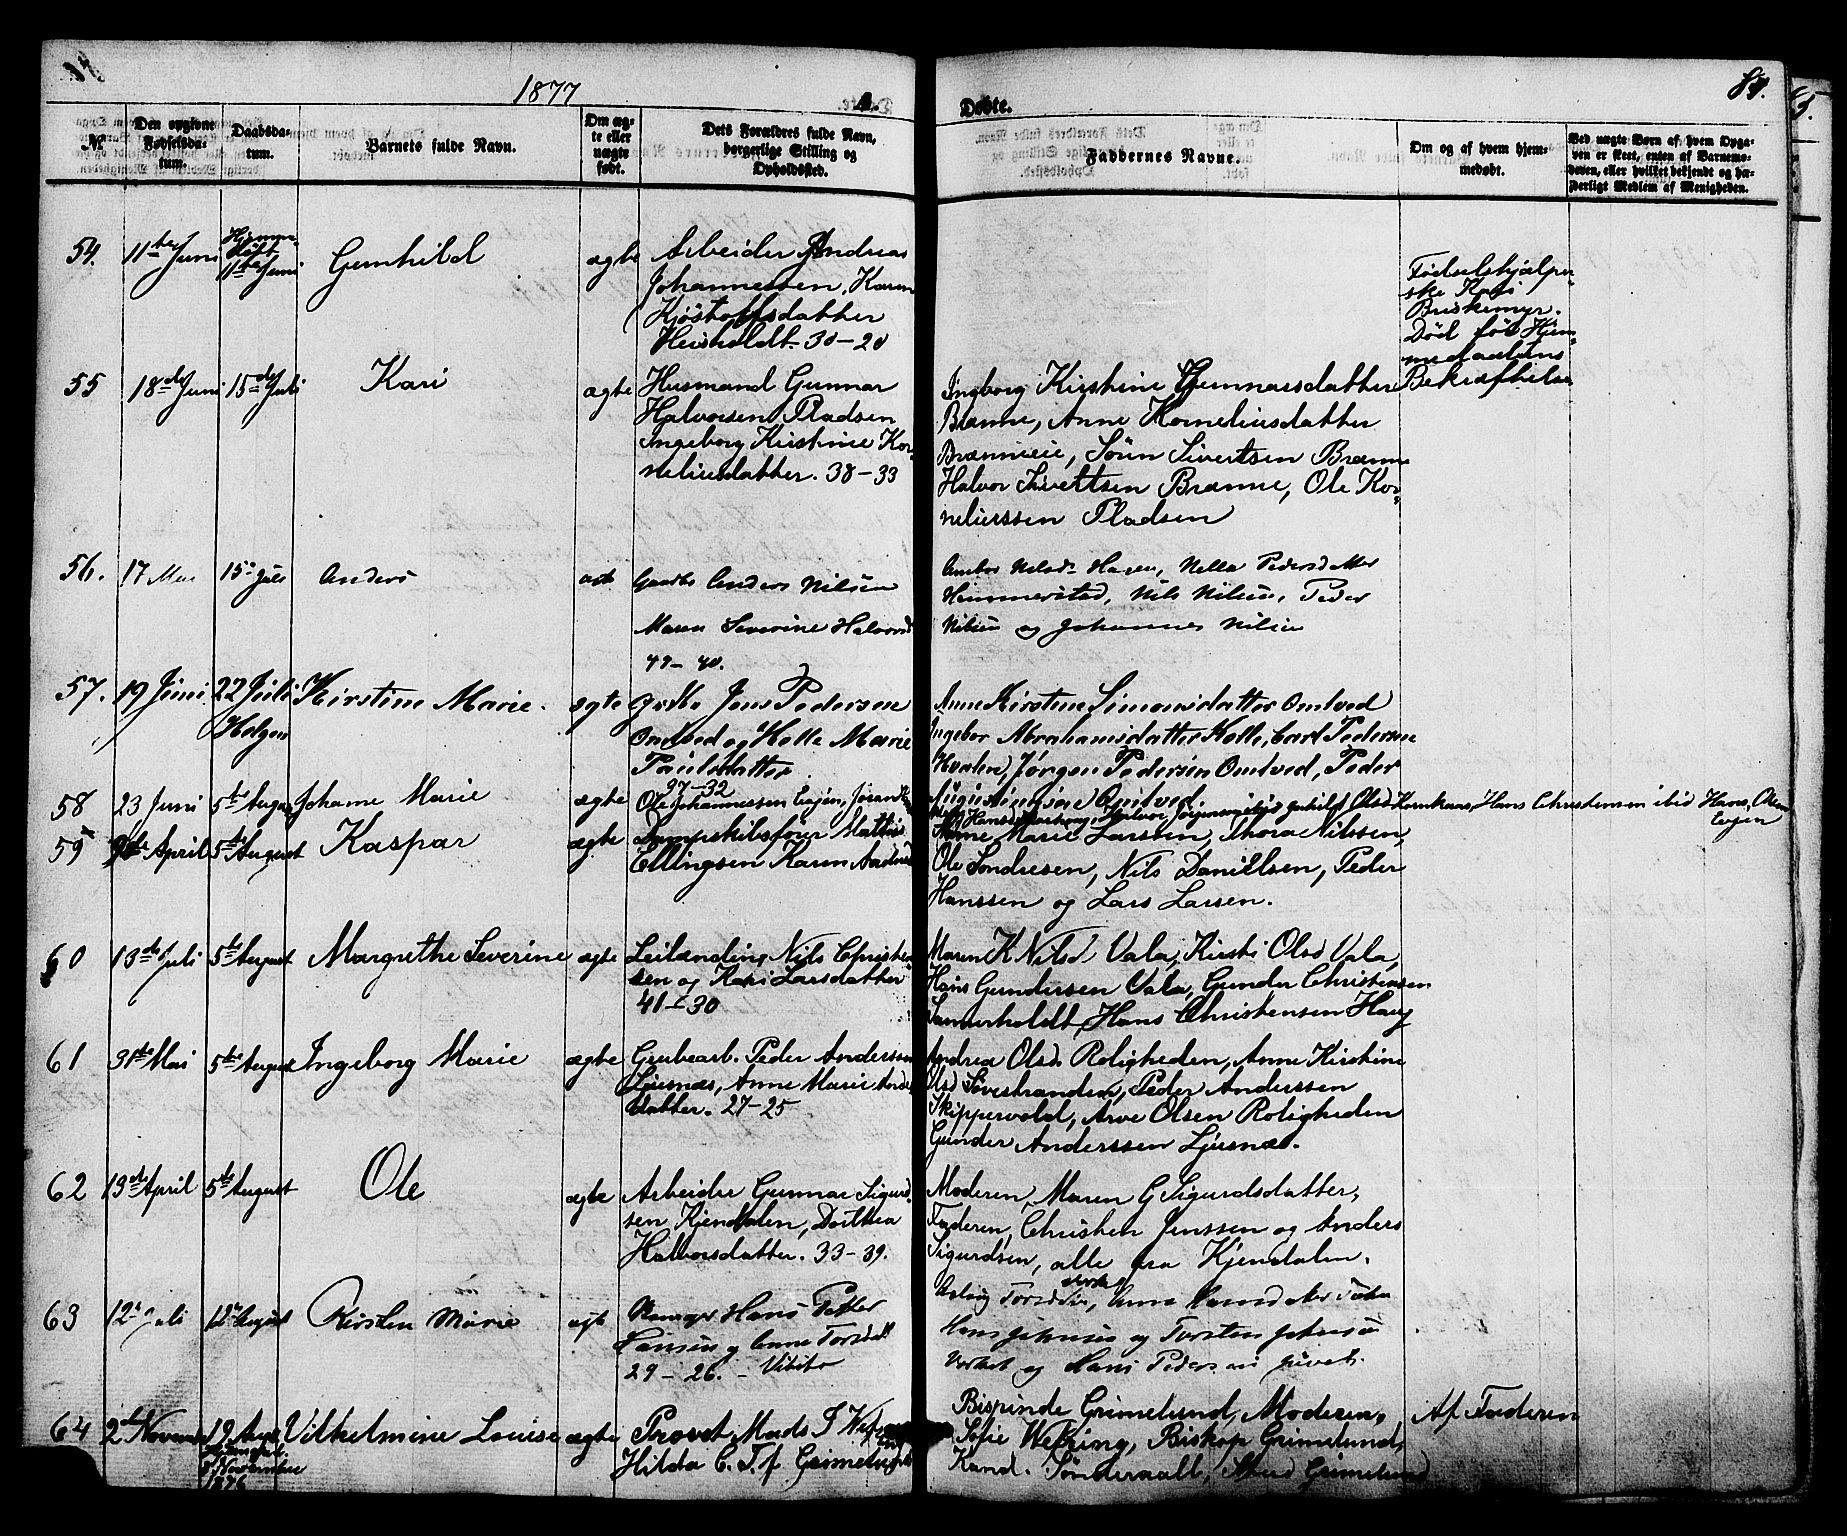 1877
Døbte.
84.
№
Den opgivne Fødselsdatum.
Daabsdatum.
Barnets fulde Navn.
Om ægte eller uægte født.
Dets Forældres fulde Navn, borgerlige Stilling og Opholdssted.
Faddernes Navne.
Om og af hvem hjemmedøbt.
Ved uægte Børn af hvem Opgaven er skeet, enten af Barnemoderen, eller hvilket bekjendt og hæderligt Medlem af Menigheden.
54. 11te Juni
Hjemmedøbt
11te Juni
Gunhild
ægte
Arbeider Andreas
Johannessen, Karen
Kjøstolfsdatter
Heisholdt 30-20
Fødselshjælper-
ske Kari
Briskemyr.
Død før Hjem-
medaabens
Bekræftelse
55 18de Juni 15de Juli Kari ægte
Husmand Gunnar
Halvorsen Pladsen
Ingeborg Kirstine Kor-
neliusdatter. 38-33
Ingborg Kirstine Gunnarsdatter
Brænne, Anne Korneliusdatter
Brænneie, Søren Sivertsen Brænne
Halvor Sivertsen Brænne, Ole Kor-
neliussen Pladsen
56. 17 Mai 15de Juli Anders ægt.
Gaardbr Anders Nilsen
Maren Severine Halvorsd
49-40.
Hagen, Nella Pedersdatter
Himmerstad, Nils Nilsen, Peder
Nilsen og Johannes Nilsen
57. 19 Juni 22 Juli
Helgen
Kirstine Marie. ægte
Grdbr Jens Pedersen
Omtved og Helle Marie
Paulsdatter
37-32
Anne Kirstine Simonsdatter Omtved
Ingebor Abrahamsdatter Kolle, Carl Pedersen
Hvalen, Jørgen Pedersen Omtved, Peder
Augustinsen Omtved.
58 23 Juni 5te August Johanne Marie ægte
Ole Johannessen Eiajen,
Hans Christensen ibid Hans Olsen
Eiajen
59 April 5te August Kaspar ægte
Dampskibsfører Mathis
Ellingsen Karen
Anne Marie Larsen, Thora Nilssen,
Ole Sondresen, Nils Daniellsen, Peder
Hanssen og Lars Larsen.
60 13de Juli 5te August Margrethe Severine ægte
Leilænding Nils Christen-
sen og Kari Larsdatter
41-30
Maren K Nilsd Vala, Kirsti Olsd Vala,
Hans Gundersen Vala, Gunder Christensen
Sannerholdt, Hans Christensen Haug
61 31te Mai 5te August Ingeborg Marie ægte
Grubearb. Peder Anderssen
Ljusnæs, Anne Marie Anders-
datter. 27-25
Andrea Olsd. Roligheden, Anne Kirstine
Olsd Søvestranden, Peder Anderssen
Skippervold, Arve Olsen Roligheden
Gunder Anderssen Ljusnæs.
62 13de April 5te August Ole ægte
Arbeider Gunnar Sigurd-
sen Kjendalen, Dorthea
Halvorsdatter. 33-39.
Moderen, Maren G Sigurdsdatter,
Faderen, Christen Jenssen og Anders
Sigurdsen, alle fra Kjendalen.
63 12te Juli 12te August Kirsten Marie ægt
Hans Petter
Hansen og Anne Torsd
29-26.
og Torsten Johnsen
og Hans Pedersen
64 2de Novem 19 Aug
8 November
1876
Vilhelmine Louise ægte
Provst Mads S Wefring
Hilda C. T. f. Grimelund
Bispinde Grimelund, Moderen,
Sofie Wefring, Biskop Grimelund,
Kand. Sønderaal, Grimelund
Af Faderen